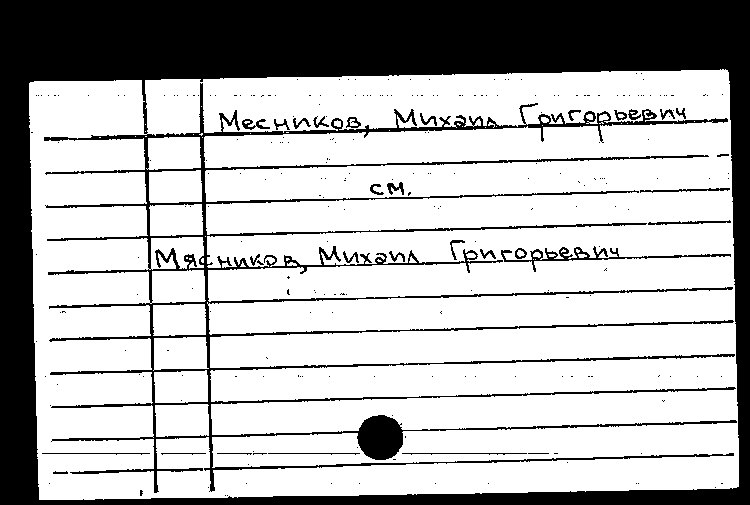 Месников, Михаил Григорьевич
см.
Мясников, Михаил Григорьевич